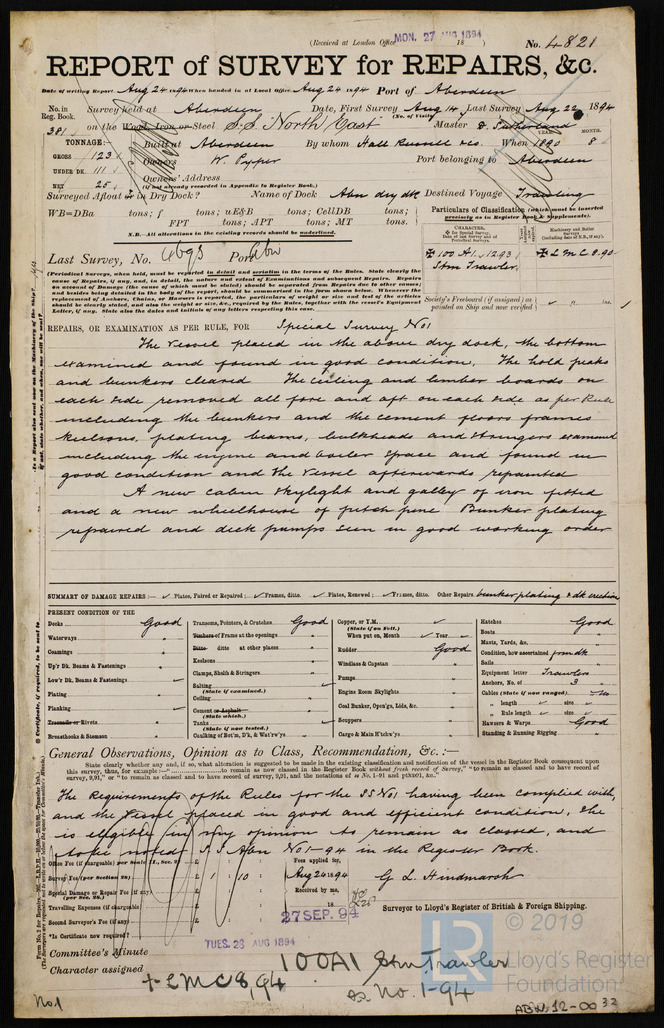 (Received at London Office MON. 27 AUG 1894 18 ) No. 4821
REPORT of SURVEY for REPAIRS, &c.
Date of writing Report Aug 24 1894 When handed in at Local Office Aug 24 1894 Port of Aberdeen
No. in Reg. Book. Survey held at Aberdeen Date, First Survey Aug 14 Last Survey Aug 22 1894
(No. of Visits)
381 on the Wood, Iron or Steel S.S. "North East" Master
TONNAGE:— Built at Aberdeen By whom Hall Russell & Co. When 1890 YEAR. MONTH. 8
GROSS 123 Owners W. Pyper Port belonging to Aberdeen
UNDER DK. 111 Owners' Address
NET 25 (if not already recorded in Appendix to Register Book.)
Surveyed Afloat or in Dry Dock? Name of Dock Abn dry dk Destined Voyage Trawling
WB=DBa tons; f tons; uE&B tons; CellDB tons;
FPT tons; APT tons; MT tons.
N.B.—All alterations in the existing records should be underlined.
Particulars of Classification (which must be inserted precisely as in Register Book & Supplements).
CHARACTER.
Machinery and Boiler Surveys
✠ 100 A1. 12.93 ✠ L M C 8.90
Stm Trawler.
Last Survey, No. 4693 Port Abn
(Periodical Surveys, when held, must be reported in detail and seriatim in the terms of the Rules. State clearly the
cause of Repairs, if any, and, in detail, the nature and extent of Examinations and subsequent Repairs. Repairs
on account of Damage (the cause of which must be stated) should be separated from Repairs due to other causes;
and besides being detailed in the body of the report, should be summarised in the form shown below. Whenever the
replacement of Anchors, Chains, or Hawsers is reported, the particulars of weight or size and test of the articles
should be clearly stated, and also the data and size, &c., required by the Rules, together with the vessel's Equipment
Letter, if any. State also the dates and initials of any letters respecting this case.
Society's Freeboard (if assigned) as painted on Ship and now verified
REPAIRS, OR EXAMINATION AS PER RULE, FOR Special Survey No 1
The vessel placed in the above dry dock, the bottom
examined and found in good condition. The hold peaks
and bunkers cleared The ceiling and limber boards on
each side removed all fore and aft on each side as per Rule
including the bunkers and the cement floors frames
keelsons, plating beams, bulkheads and stringers examined
including the engine and boiler space and found in
good condition and the vessel afterwards repainted
A new cabin skylight and galley of iron fitted
and a new wheelhouse of pitch pine Bunker plating
repaired and deck pumps seen in good working order
SUMMARY OF DAMAGE REPAIRS:— Plates, Faired or Repaired; Frames, ditto. Plates, Renewed; Frames, ditto. Other Repairs. bunker plating & dk erection
PRESENT CONDITION OF THE
Decks Good
Waterways "
Coamings "
Up'r Dk. Beams & Fastenings "
Low'r Dk. Beams & Fastenings
Plating "
Planking
Treenails or Rivets "
Breasthooks & Stemson "
Transoms, Pointers, & Crutches Good
Timbers of Frame at the openings "
Ditto ditto at other places "
Keelsons "
Clamps, Shelfs & Stringers "
Salting (State if examined.)
Ceiling "
Cement or Asphalt (State which.) "
Tanks (State if now tested.)
Caulking of Bot'm, D'ks, & Wat'rw'ys "
Copper, or Y.M. (State if on Felt.)
When put on, Month Year
Rudder Good
Windlass & Capstan "
Pumps "
Engine Room Skylights "
Coal Bunker, Open'gs, Lids, &c. "
Scuppers "
Cargo & Main H'tchw'ys "
Hatches Good
Boats "
Masts, Yards, &c. "
Condition, how ascertained from dk
Sails "
Equipment letter Trawlers
Anchors, No. of 3
Cables (State if now ranged) No
" length size
" Rule length size
Hawsers & Warps Good
Standing & Running Rigging "
General Observations, Opinion as to Class, Recommendation, &c.:—
State clearly whether any, and if so, what alteration is suggested to be made in the existing classification and notification of the vessel in the Register Book consequent upon
this survey, thus, for example:—" to remain as now classed in the Register Book without fresh record of Survey," "to remain as classed and to have record of
survey, 9,91," or "to remain as classed and to have record of survey, 9,91, and the notations of ss No. 1-91 and ptND91, &c."
The Requirements of the Rules for the SS No 1, having been complied with,
and the vessel placed in good and efficient condition, she
is eligible in my opinion to remain as classed, and
to be noted S.S. Abn No 1-94 in the Register Book.
Office Fee (if chargeable) per Scale II., Sec. 2 £
Survey Fee (per Section 28) £ 1 10
Special Damage or Repair Fee (if any) (per Sec. 28.) £
Travelling Expenses (if chargeable) £
Second Surveyor's Fee (if any) £
*Is Certificate now required?
Fees applied for,
Aug 24 1894
Received by me,
18
27 SEP. 94
G L Hindmarsh
Surveyor to Lloyd's Register of British & Foreign Shipping.
TUES. 28 AUG 1894
Committee's Minute
Character assigned
100A1 Stm Trawler
+LMC 8,94 ss. No. 1-94
No 1
© 2019
LR Lloyd's Register Foundation
ABN-12-0032